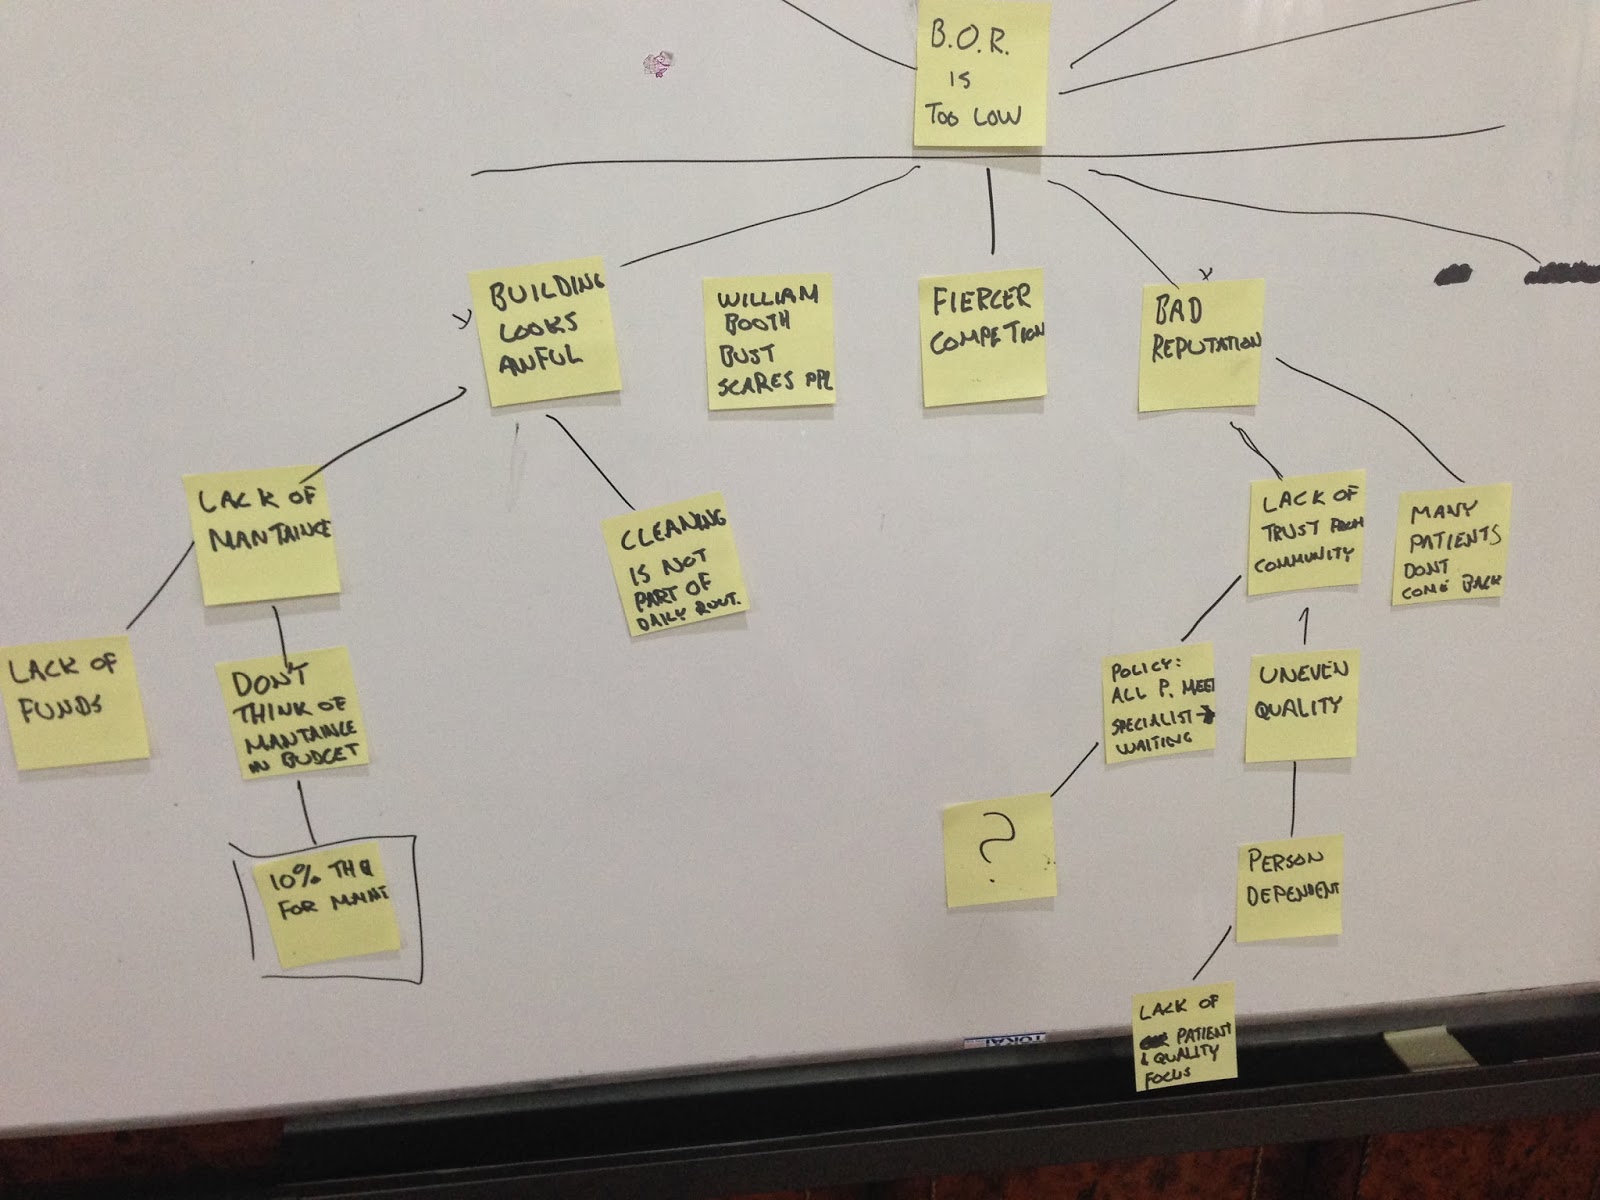 B.O.R.
IS
TOO LOW
BUILDING
LOOKS
AWFUL
WILLIAM
BOOTH
BUST
SCARES PPL
FIERCER
COMPETION
BAD
REPUTATION
LACK OF
MANTAINCE
CLEANING
IS NOT
PART OF
DAILY ROUT.
LACK OF
TRUST FROM
COMMUNITY
MANY
PATIENTS
DONT
COME BACK
LACK OF
FUNDS
DON'T
THINK OF
MANTAINCE
IN BUDGET
POLICY:
ALL P. MEET
SPECIALIST →
WAITING
UNEVEN
QUALITY
10% THQ
FOR MAINT
?
PERSON
DEPENDENT
LACK OF
PATIENT
& QUALITY
FOCUS
TOKAI